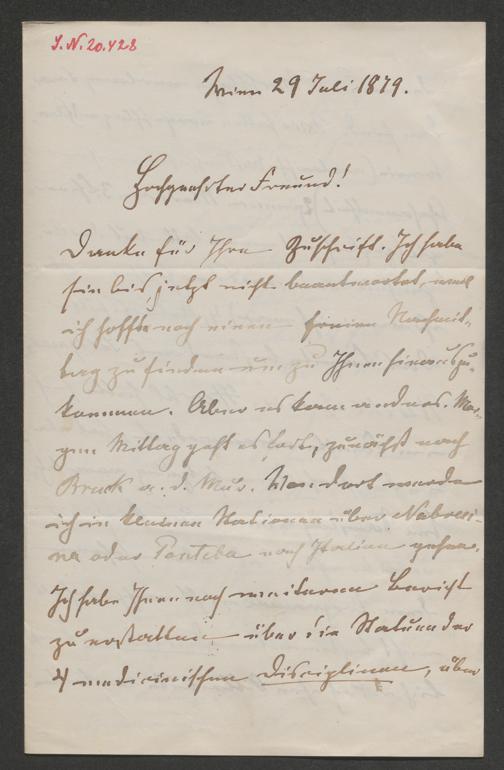 I.N. 20.428
Wien 29 Juli 1879.
Hochgeehrter Freund!
Danke für Ihre Zuschrift. Ich habe
sie bis jetzt nicht beantwortet, weil
ich hoffte noch einen freien Nachmit-
tag zu finden um zu Ihnen hinauszu-
kommen. Aber es kam anders. Mor-
gen Mittag geht es fort, zunächst nach
Bruck a. d. Mur. Von dort werde
ich in kleinen Stationen über Nabresi-
na oder Ponteba nach Italien gehen.
Ich habe Ihnen noch weiteren Bericht
zu erstatten über die Statuen der
4 medicinischen Disciplinen, über